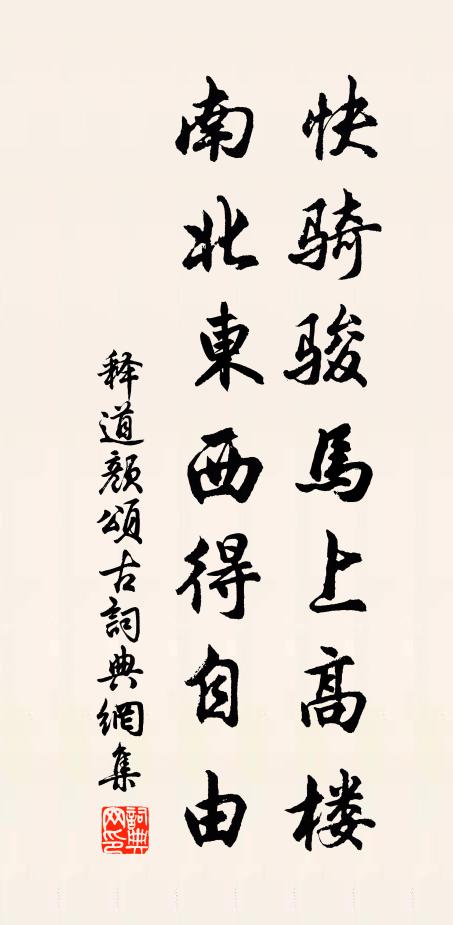 快骑骏馬上高楼
南北東西得自由
释道颜頌古詞典網集
詞典网印